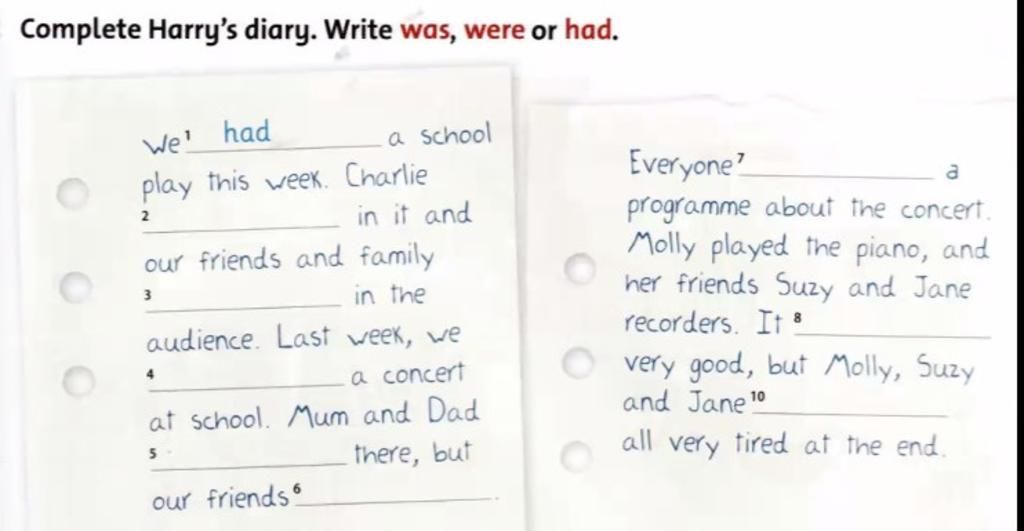 Complete Harry's diary. Write was, were or had.
We ¹ had a school
play this week. Charlie
2 in it and
our friends and family
3 in the
audience. Last week, we
4 a concert
at school. Mum and Dad
5 there, but
our friends 6 .
Everyone 7 a
programme about the concert.
Molly played the piano, and
her friends Suzy and Jane
recorders. It 8
very good, but Molly, Suzy
and Jane 10
all very tired at the end.